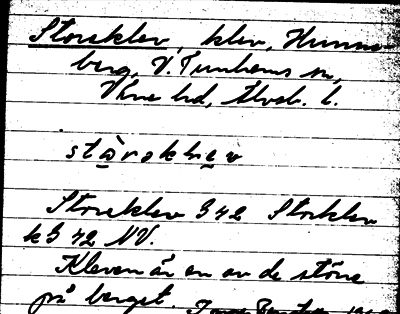 Storeklev, klev, Hunne-
berg, V. Tunhems sn,
Väne hd, Älvsb. l.
stòrəkle̱v
Storeklev 342 Storklev
k 3 42 NV.
Kleven är en av de större
på berget.